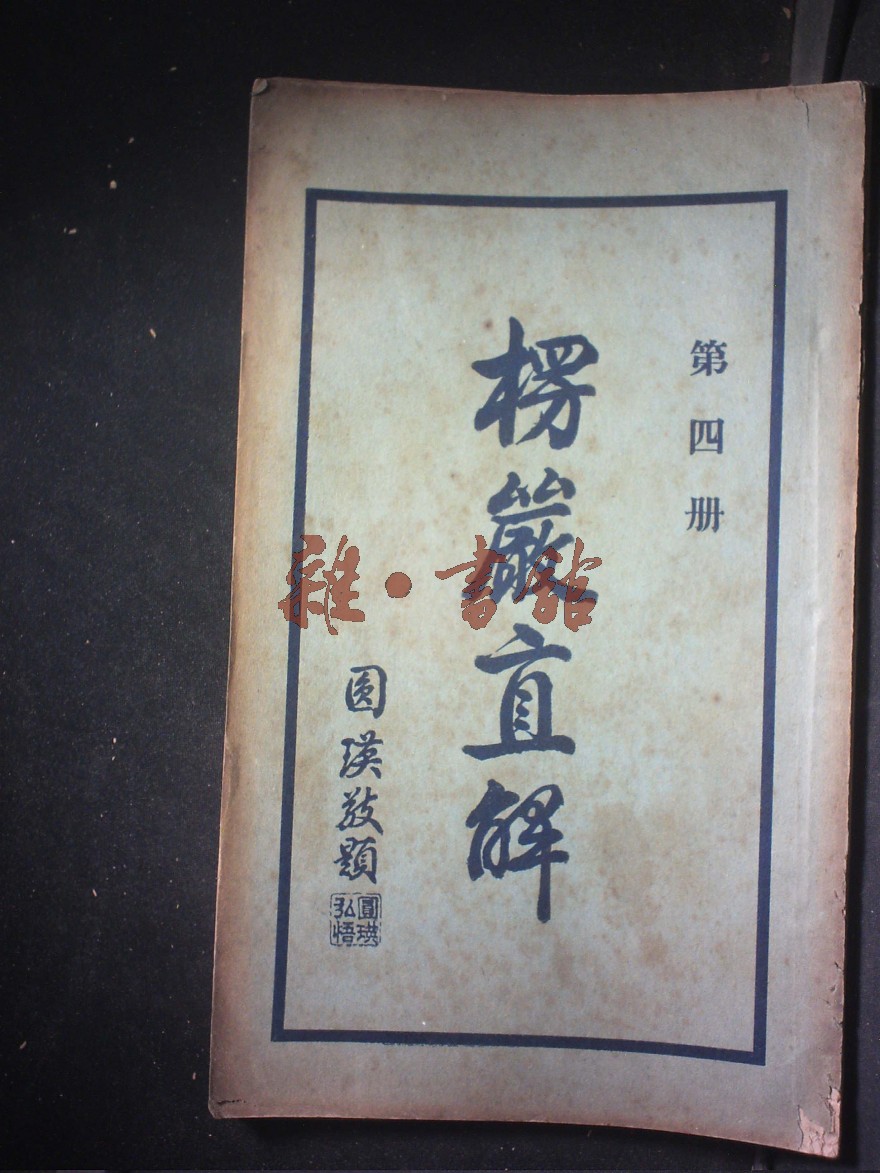 第四册
楞嚴直解
圆瑛敬題
圓瑛弘悟
雜·書館